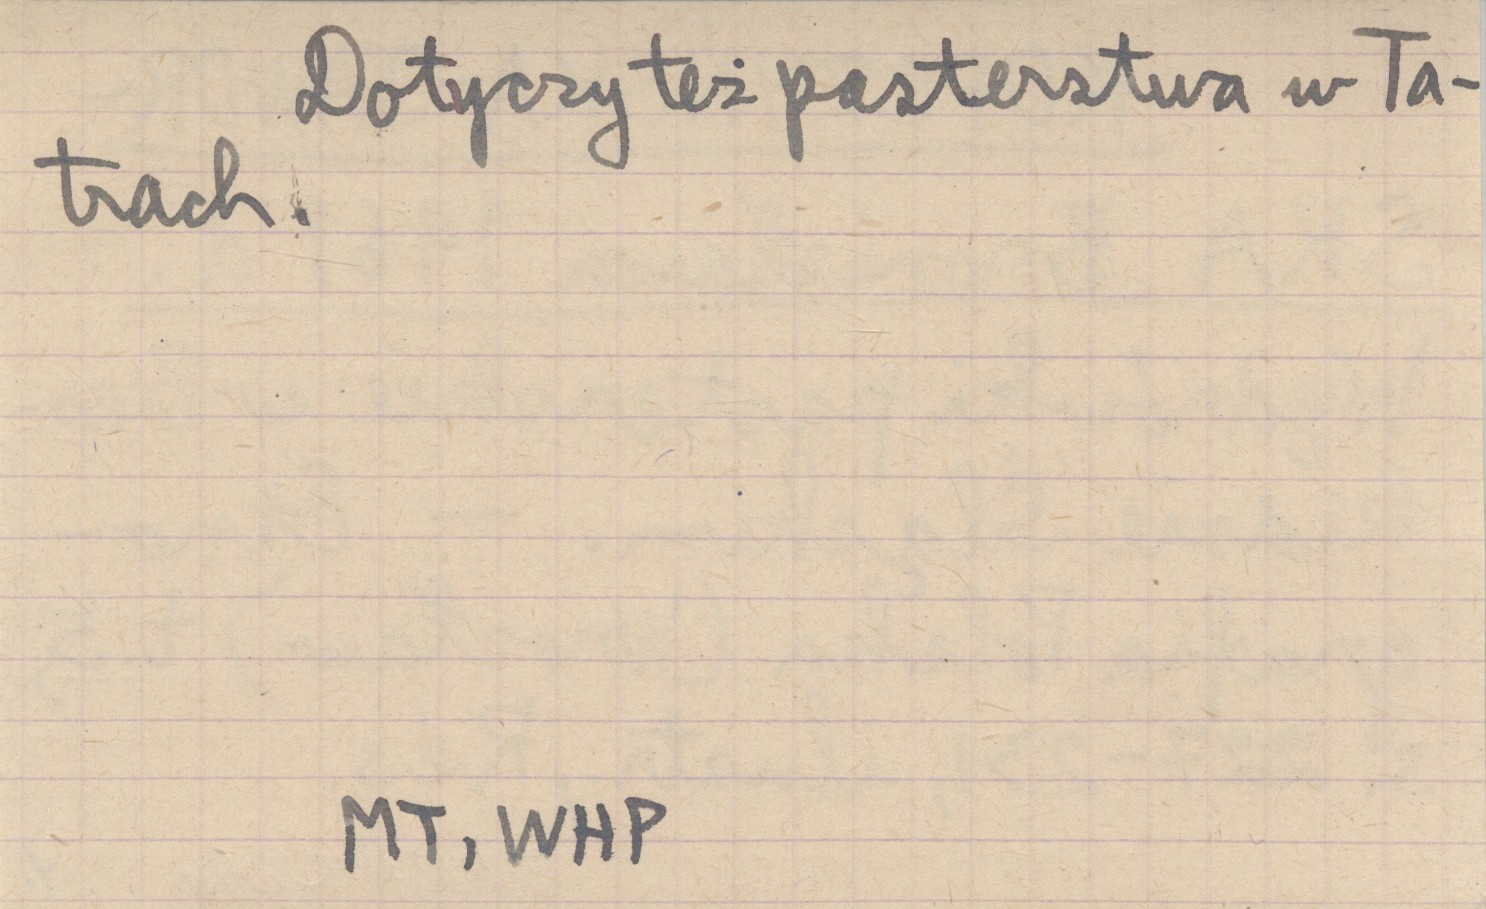 Dotyczy też pasterstwa w Ta-
trach.
MT, WHP